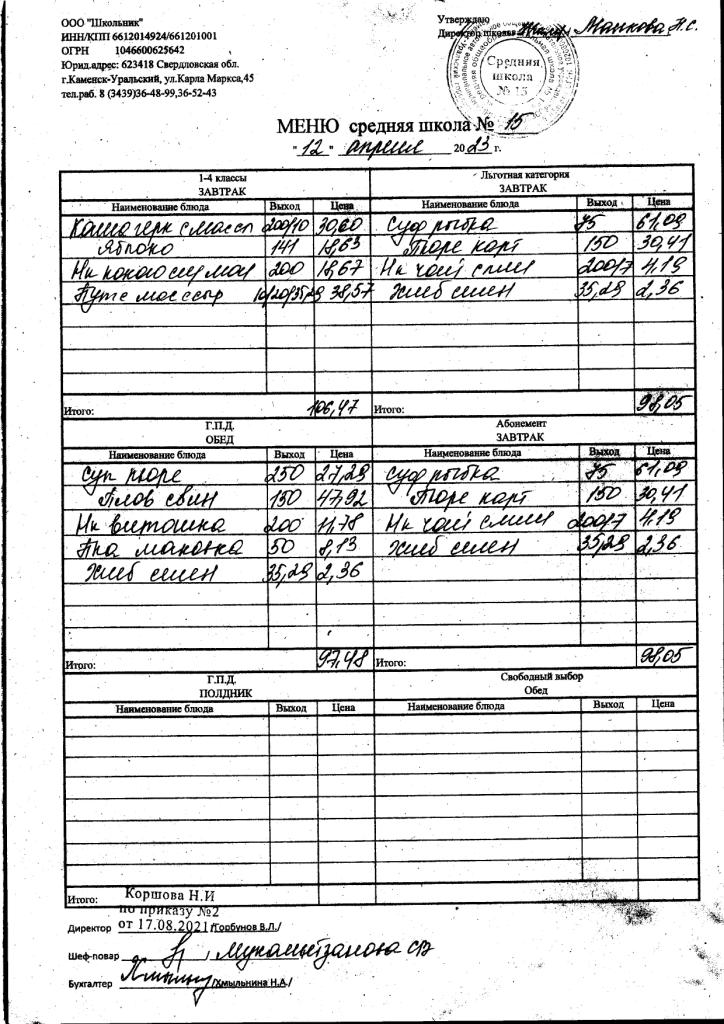 ООО "Школьник"
ИНН/КПП 6612014924/661201001
ОГРН 1046600625642
Юрид.адрес: 623418 Свердловская обл.
г.Каменск-Уральский, ул.Карла Маркса,45
тел.раб. 8 (3439)36-48-99,36-52-43
Утверждаю
Директор школы
Средняя
школа
№ 15
МЕНЮ средняя школа № 15
"12" апреля 2023 г.
1-4 классы
ЗАВТРАК
Наименование блюда Выход Цена
Каша герк с масл 200/10 30,60
Яблоко 141 18,63
Нк какао с мол 200 18,67
Бутс масссыр 10/20/35,29 38,57
Итого: 106,47
Льготная категория
ЗАВТРАК
Наименование блюда Выход Цена
Суф рыбка 75 61,09
Пюре карт 150 30,41
Нк чай слим 200/7 4,19
Хлеб пшен 35,29 2,36
Итого: 98,05
Г.П.Д.
ОБЕД
Наименование блюда Выход Цена
Суп пюре 250 27,29
Плов свин 150 47,92
Нк виташка 200 11,78
Пка маковка 50 8,13
Хлеб пшен 35,29 2,36
Итого: 97,48
Абонемент
ЗАВТРАК
Наименование блюда Выход Цена
Суф рыбка 75 61,09
Пюре карт 150 30,41
Нк чай слим 200/7 4,19
Хлеб пшен 35,29 2,36
Итого: 98,05
Г.П.Д.
ПОЛДНИК
Наименование блюда Выход Цена
Итого:
Свободный выбор
Обед
Наименование блюда Выход Цена
Коршова Н.И
по приказу №2
Директор от 17.08.2021 /Горбунов В.Л./
Шеф-повар
Бухгалтер /Хмыльнина Н.А./